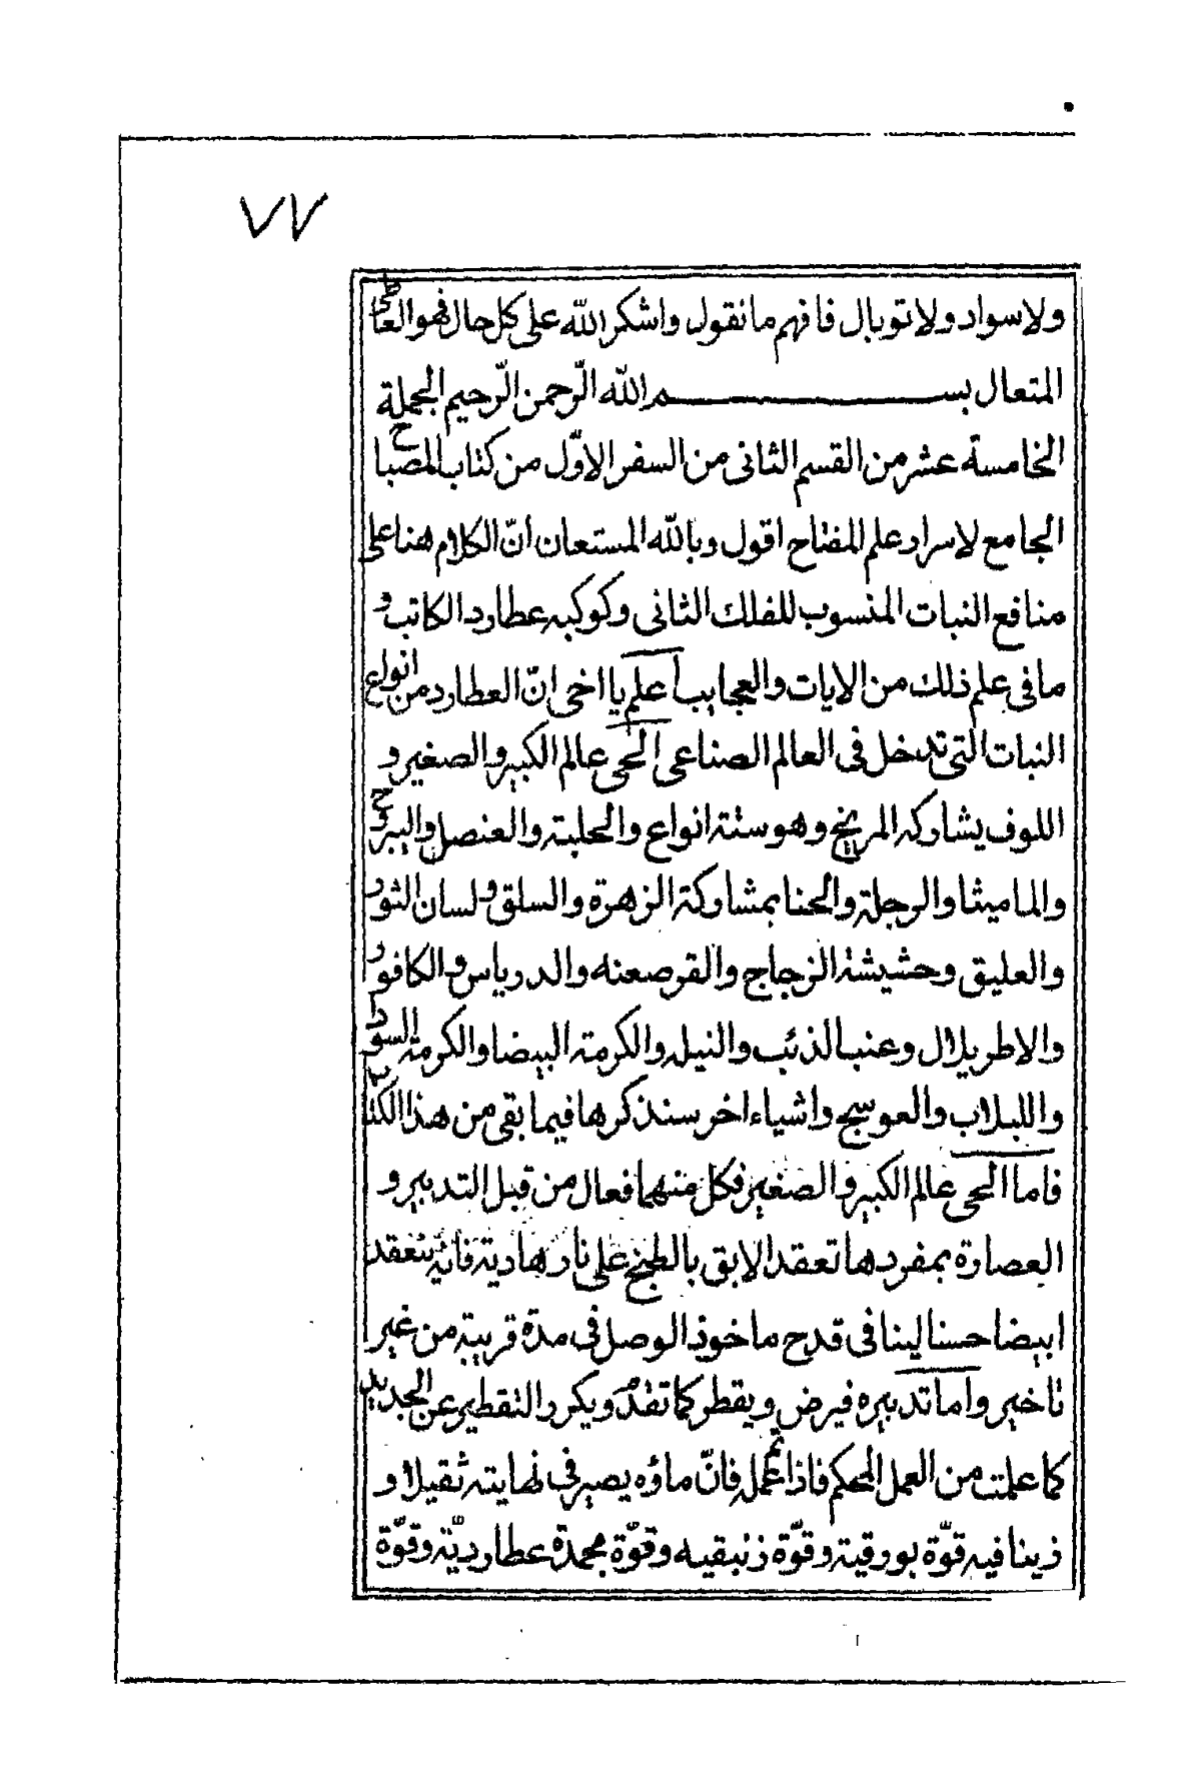 ٧٧
ولا سواد ولا توبال فافهم ما نقول واشكر الله على كل حال فهو العلى
المتعال بســــــــــم الله الرّحمن الرّحيم الجملة
الخامسة عشر من القسم الثانى من السفر الاوّل من كتاب المصباح
الجامع لاسرار علم المفتاح اقول وبالله المستعان انّ الكلام هنا على
منافع النبات المنسوب للفلك الثانى وكوكبه عطارد الكاتب و
ما فى علم ذلك من الايات والعجايب اعلم يا اخى انّ العطارد من انواع
النبات التى تدخل فى العالم الصناعى الحى عالم الكبير والصغير و
اللوف يشاركه المريخ وهو ستة انواع والحلبة والعنصل واليبروح
والماميثا والرجلة والحنا بمشاركة الزهرة والسلق ولسان الثور
والعليق وحشيشة الزجاج والقرصعنه والدرياس والكافور
والاطريلال وعنب الذئب والنيله والكرمة البيضا والكرمة السودا
واللبلاب والعوسج واشياء اخر سنذكرها فيما بقى من هذا الكتاب
فاما الحى عالم الكبير والصغير فكل منهما فعال من قبل التدبير و
العصارة بمفردها تعقد الابق بالطبخ على نار هادية فانه ينعقد
ابيضا حسنا لينا فى قدح ماخوذ الوصل فى مدة قريبة من غير
تاخير واما تدبيره فيرض ويقطر كما تقدّم ويكرر التقطير عن الجديد
كما علمت من العمل المحكم فاذا تم عمله فانّ ماؤه يصير فى نهايته ثقيلا و
زينا فيه قوّة بورقية وقوّة زئبقيه وقوّة مجمدة عطارديّة وقوّة